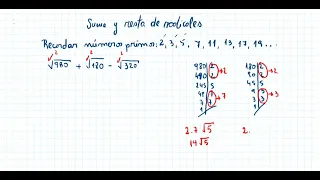 Suma y resta de radicales
Recordar números primos: 2, 3, 5, 7, 11, 13, 17, 19...
√980 + √180 - √320
980 2
490 2
245 5
49 7
7 7
1
→2
→7
180 2
90 2
45 5
9 3
3 3
1
→2
→3
2.7√5
14√5
2.